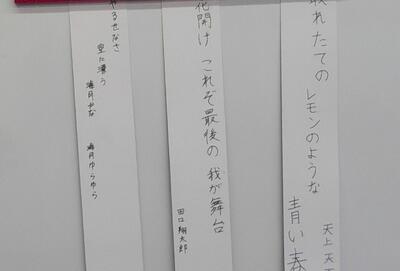 取れたての
レモンのような
青い春
天上天
花開け これぞ最後の 我が舞台
田口翔太郎
やるせなさ
空に漂う
海月かな
海月ゆらゆら